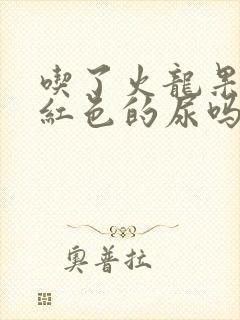 喫了火龍果
紅色的尿嗎
奧普拉